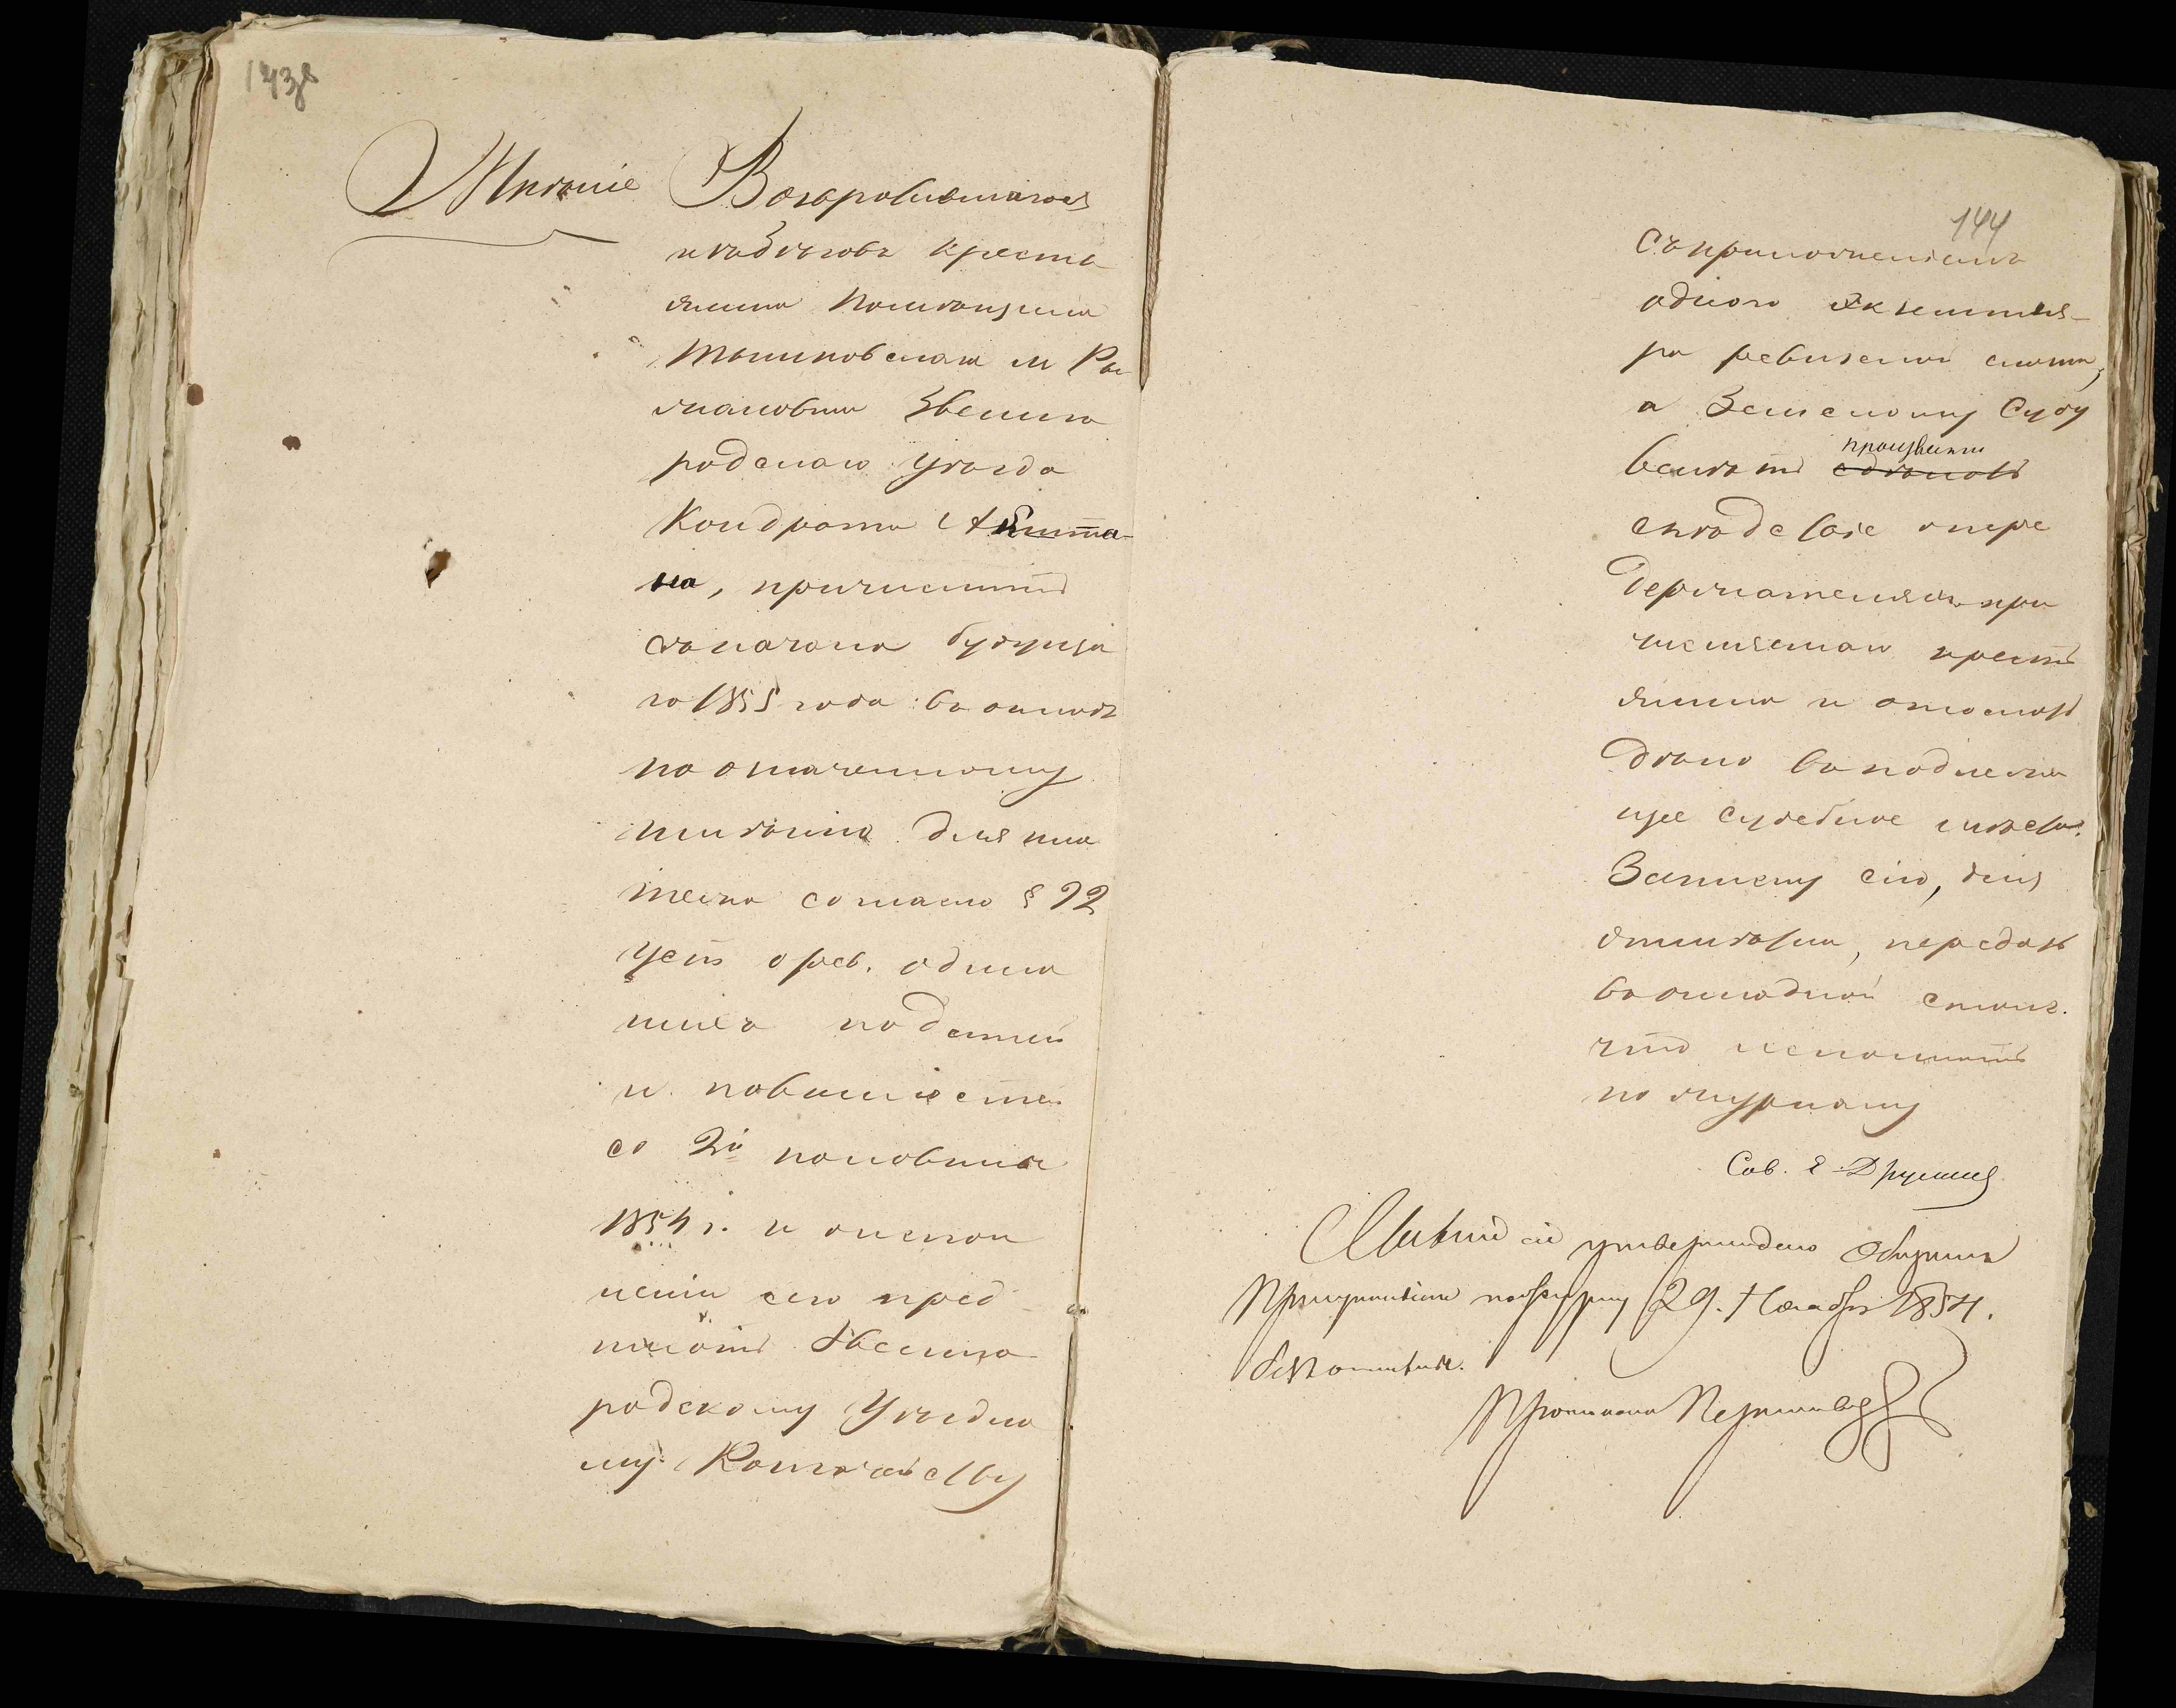 143 об
Мнѣніе Возвратившагося
изъ бѣговъ крестья
янина помѣщика
м. Ры
жановки Звенино
родскаго уѣзда
Кондрата
на, причислить
съ начала будуща
го 1855 года въ окладъ
по означенному
имѣнію для пла
тежа согласно § 92
Уст. о рев. однѣ
податей
и повинностей
со 2й половины
1854 г. и о испол
неніи сего пред
писать Звенино
родскому Уѣздно
му Казначейству
144
съ приложеніемъ
одного экземпля-
ра ревизской сказки,
а Земскому Суду
велѣть произвести
слѣдствіе о пере
держателяхъ при
числяемаго кресть
янина и отослать
дѣло въ подлежа
щее судебное мѣсто.
Записку сію, для
отмѣтки, передать
въ окладной столъ.
что исполнить
по журналу
Сов.
Мнѣніе сіе утверждено Общимъ
Присутствіемъ по журналу 29. Ноября 1854.